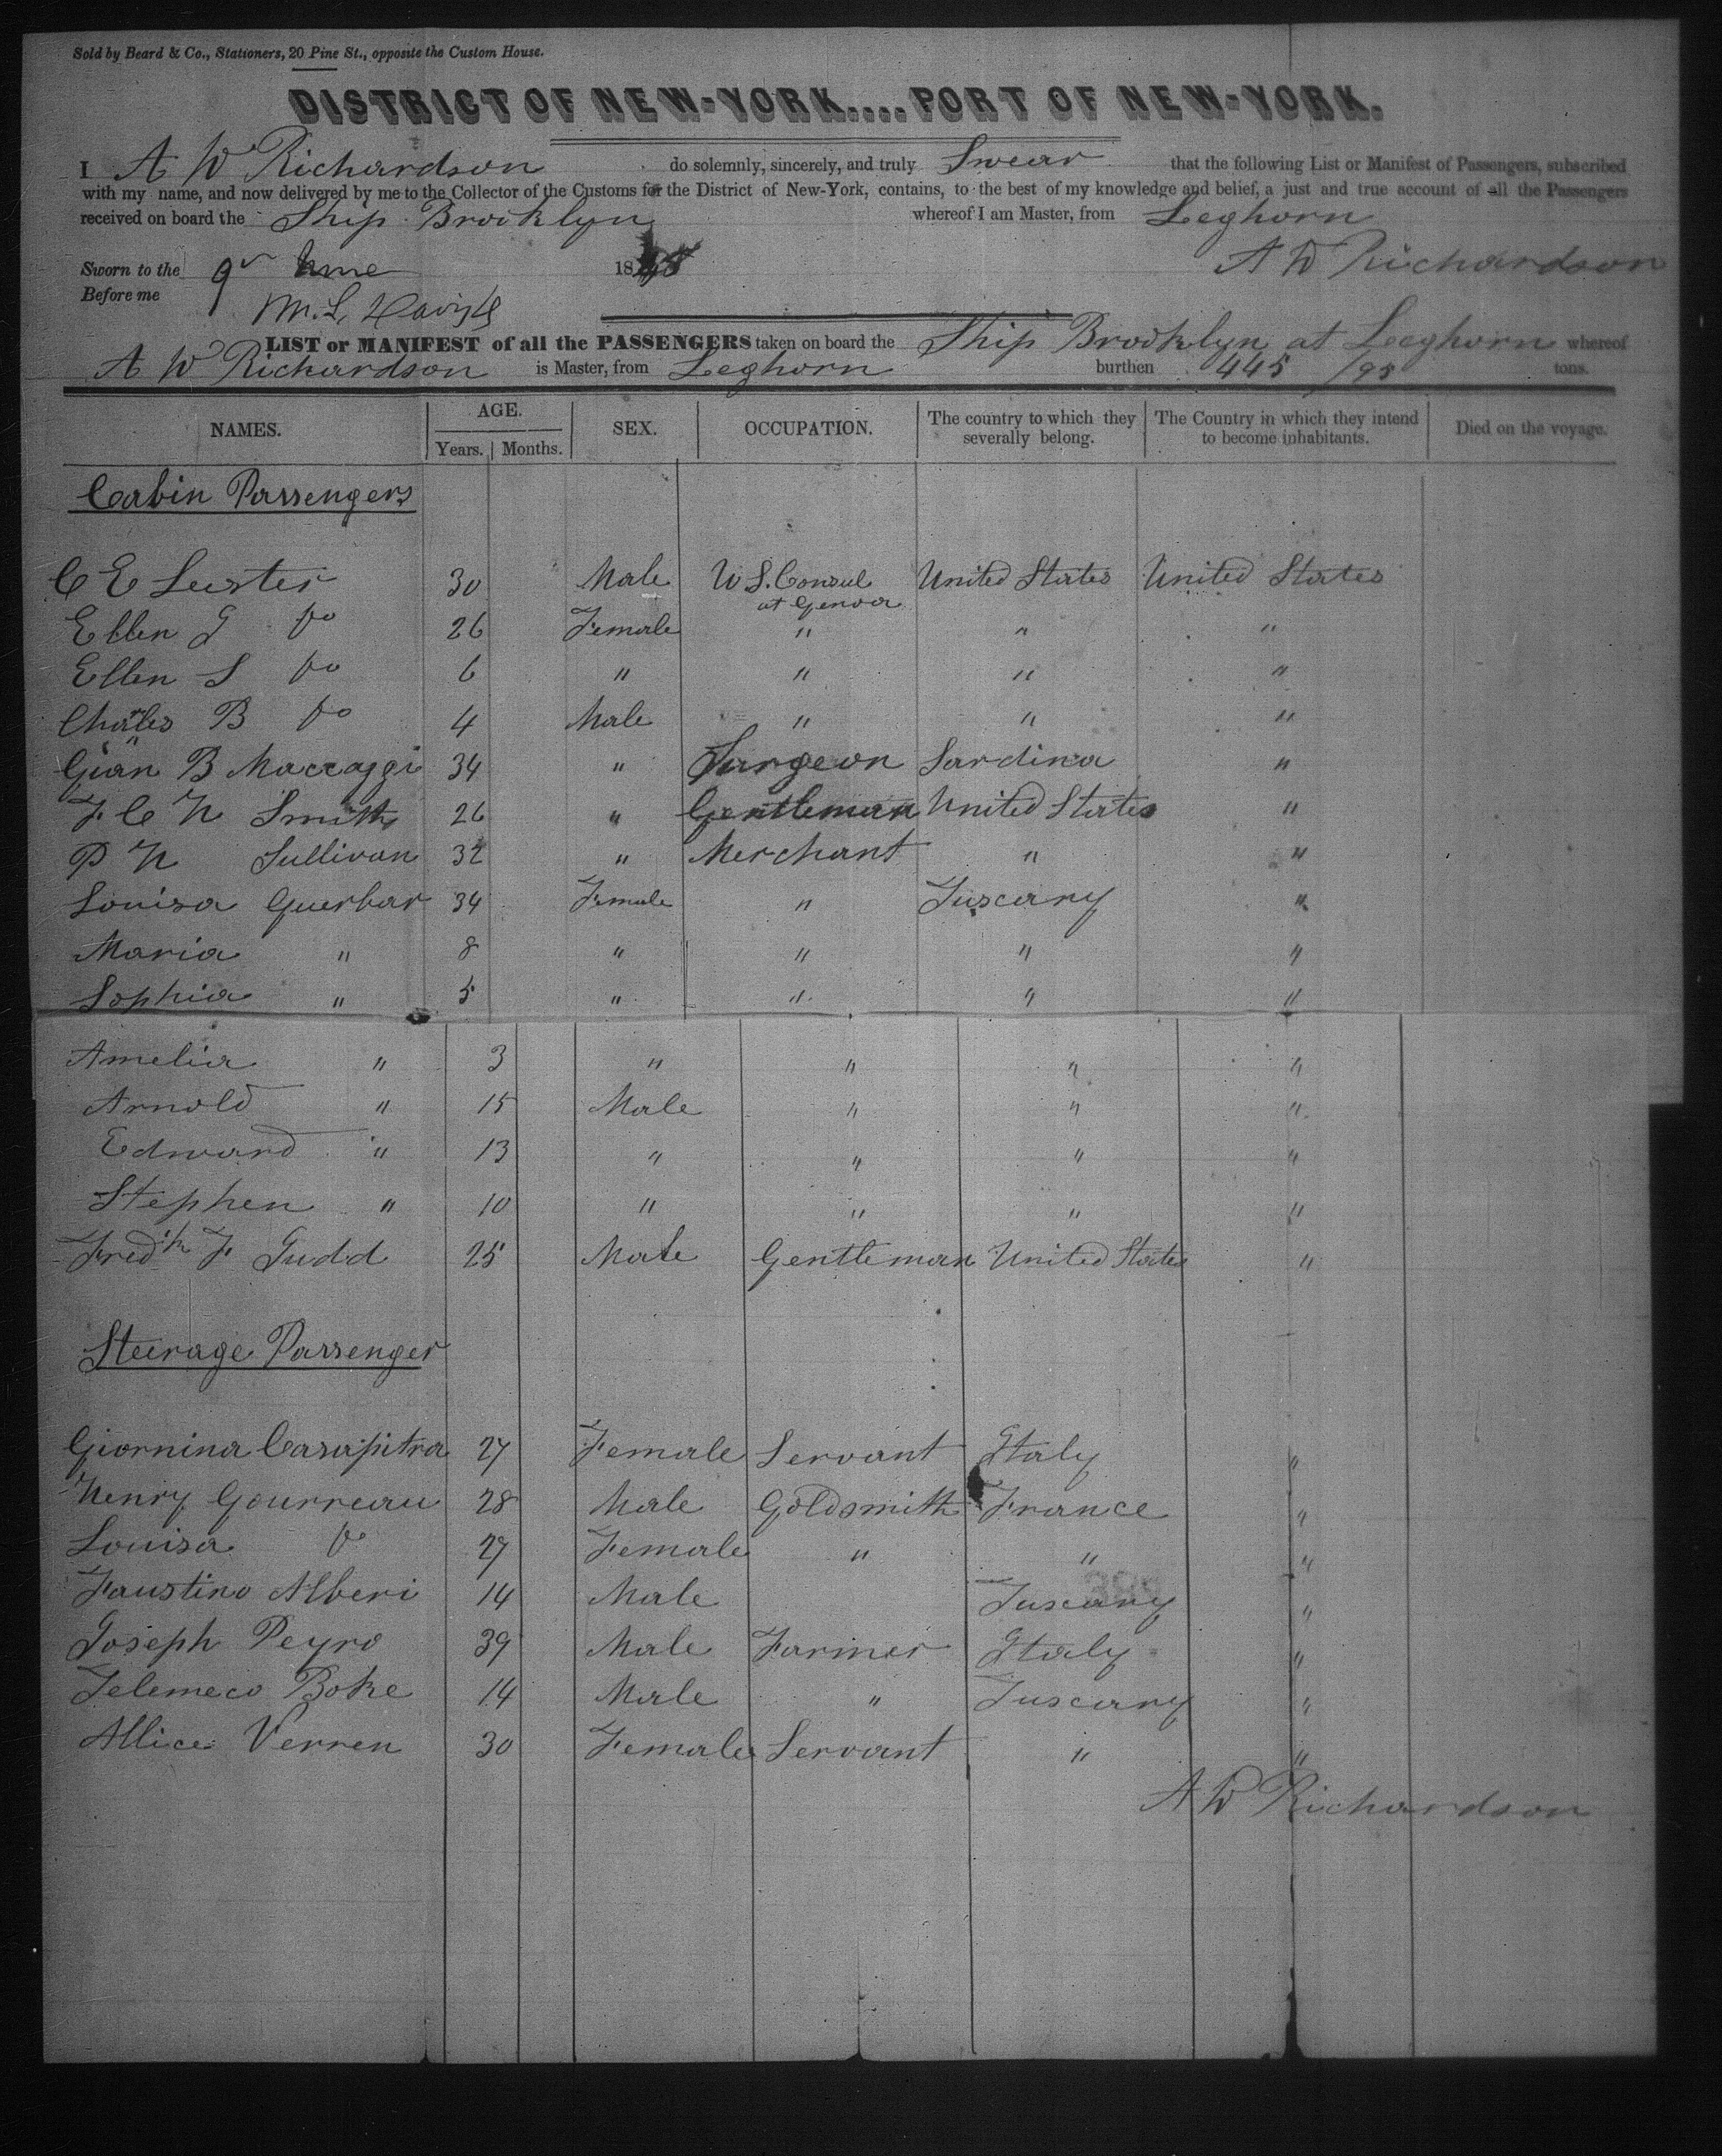 Sold by Beard & Co., Stationers, 20 Pine St., opposite the Custom House.
DISTRICT OF NEW-YORK....PORT OF NEW-YORK.
I A W Richardson do solemnly, sincerely, and truly Swear that the following List or Manifest of Passengers, subscribed
with my name, and now delivered by me to the Collector of the Customs for the District of New-York, contains, to the best of my knowledge and belief, a just and true account of all the Passengers
received on board the Ship Brooklyn whereof I am Master, from Leghorn
A W Richardson
Sworn to the 9 June 18
Before me
LIST or MANIFEST of all the PASSENGERS taken on board the Ship Brooklyn at Leghorn whereof
A W Richardson is Master, from Leghorn burthen 445 /95 tons.
NAMES. AGE. Years. Months. SEX. OCCUPATION. The country to which they severally belong. The Country in which they intend to become inhabitants. Died on the voyage.
Cabin Passengers
C E Lester 30 Male U S. Consul at Genoa United States United States
Ellen G Do 26 Female " " "
Ellen S Do 6 " " " "
Charles B Do 4 Male " " "
Gian B Maccaggi 34 " Surgeon Sardina "
F C N Smith 26 " Gentleman United States "
P N Sullivan 32 " Merchant " "
Louisa Guerbar 34 Female " Tuscany "
Maria " 8 " " " "
Sophia " 5 " " " "
Amelia " 3 " " " "
Arnold " 15 Male " " "
Edward " 13 " " " "
Stephen " 10 " " " "
Fredik F Judd 25 Male Gentleman United States "
Steerage Passenger
Giornina Casapitra 27 Female Servant Italy "
Henry Gourreau 28 Male Goldsmith France "
Louisa Do 27 Female " " "
Faustino Alberi 14 Male Tuscany "
Joseph Peyro 39 Male Farmer Italy "
Telemeco Boke 14 Male " Tuscany "
Allice Verren 30 Female Servant " "
A W Richardson